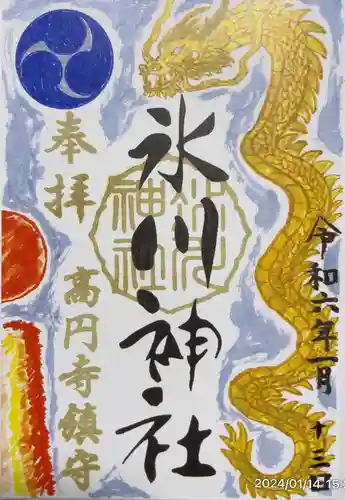 令和六年一月十三日
氷川神社
氷川
神社
奉拝
高円寺鎮守
2024/01/14 15: